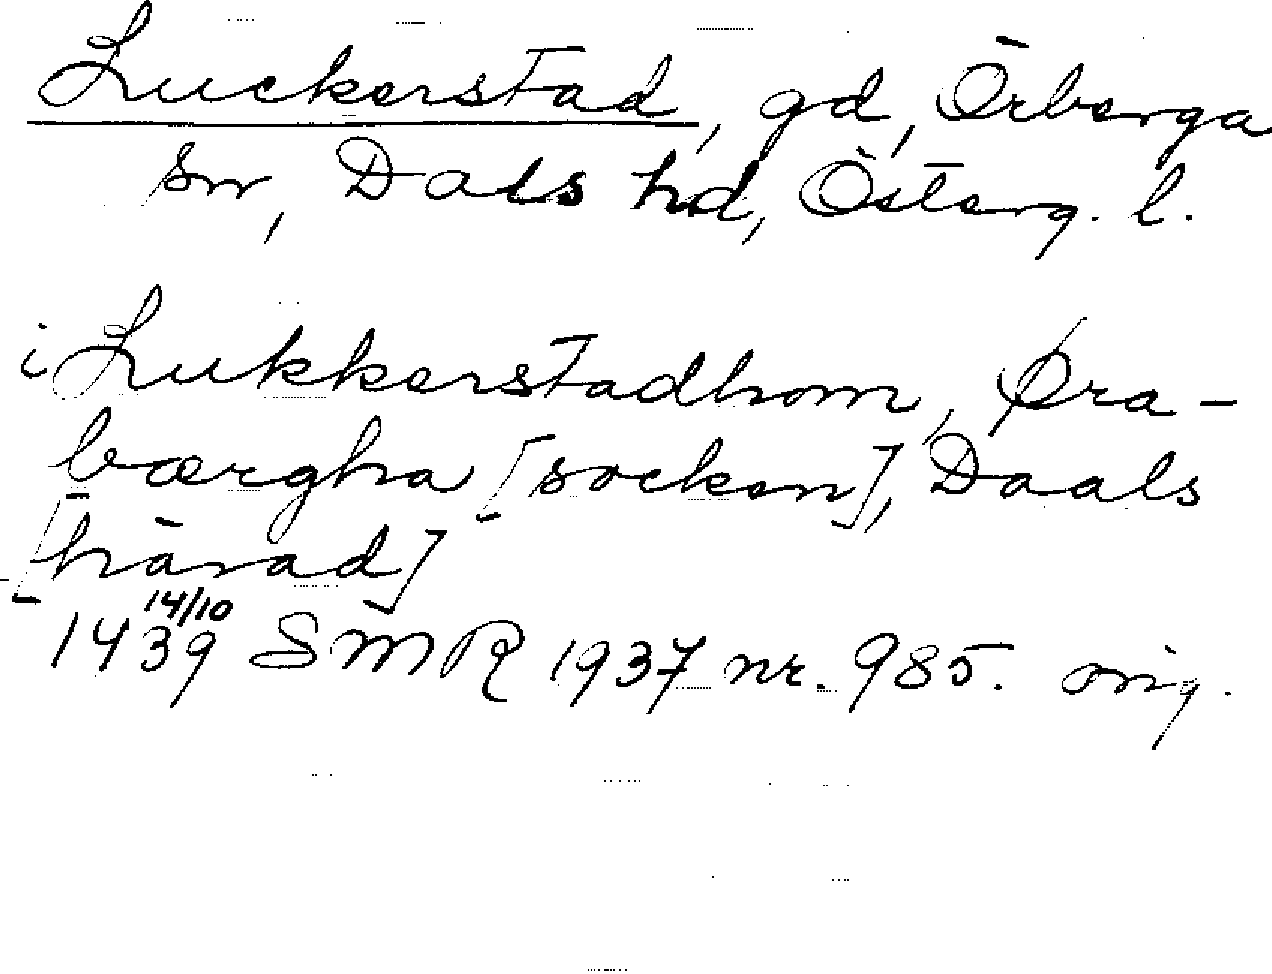 Luckerstad, gd, Örberga
sn, Dals hd, Österg. l.
i Lukkerstadhom, Øra-
bærgha [socken], Daals
[härad]
14/10
1439 SMR 1937 nr. 985. orig.